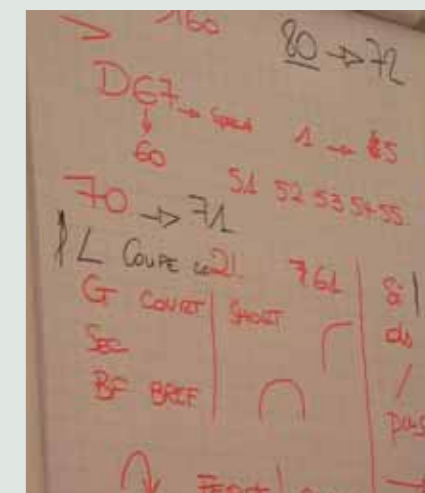 160
80 → 72
D67 →
60
1 → 85
51 52 53 54 55
70 → 71
L COUPE 21. 761
G COURT SHORT Si
SEC do
BF BREF /
puis